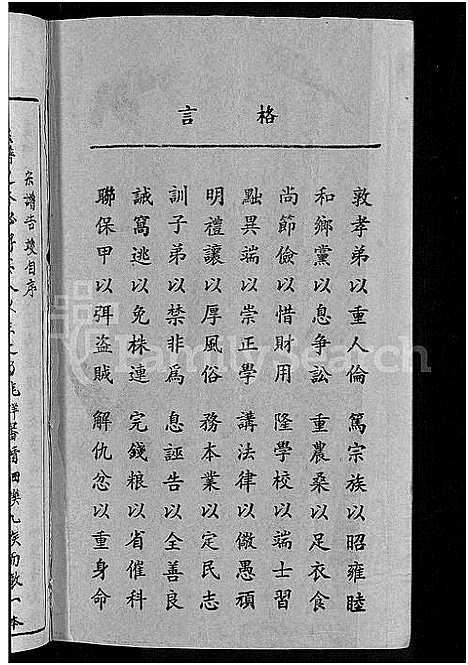 格言
敦孝弟以重人倫 篤宗族以昭雍睦
和鄉黨以息争訟 重農桑以足衣食
尚節儉以惜財用 隆學校以端士習
黜異端以崇正學 講法律以儆愚頑
明禮讓以厚風俗 務本業以定民志
訓子弟以禁非爲 息誣告以全善良
誡窩逃以免株連 完錢粮以省催科
聯保甲以弭盗賊 解仇忿以重身命
宗譜告竣自序
FamilySearch